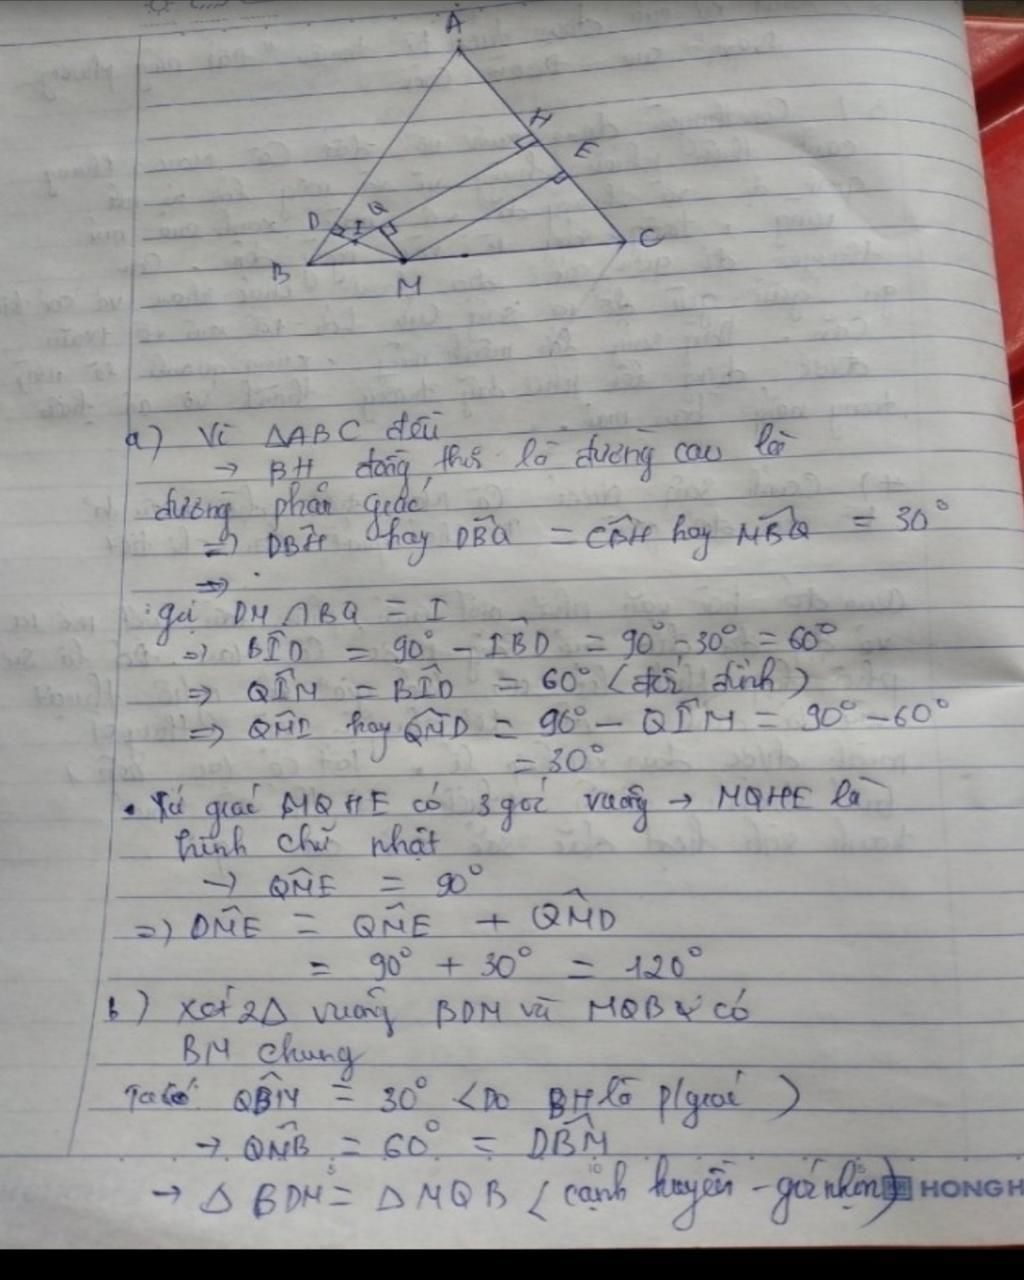 A
H
E
D
I
Q
B
M
C
a) Vì ΔABC đều
→ BH đồng thời là đường cao là
đường phân giác
=> DB̂H hay DB̂Q = CB̂H hay MB̂Q = 30°
=>
gọi DM ∩ BQ = I
=> BÎD = 90° - IB̂D = 90° - 30° = 60°
=> QÎM = BÎD = 60° (đối đỉnh)
=> QM̂I hay QM̂D = 90° - QÎM = 90° - 60°
= 30°
• Tứ giác MQHE có 3 góc vuông → MQHE là
hình chữ nhật
→ QM̂E = 90°
=> DM̂E = QM̂E + QM̂D
= 90° + 30° = 120°
b) Xét 2Δ vuông BDM và MQB có
BM chung
Ta có QB̂M = 30° (Do BH là p/giác)
→ QM̂B = 60° = DB̂M
→ Δ BDM = Δ MQB (cạnh huyền - góc nhọn)
5
10
HONG H